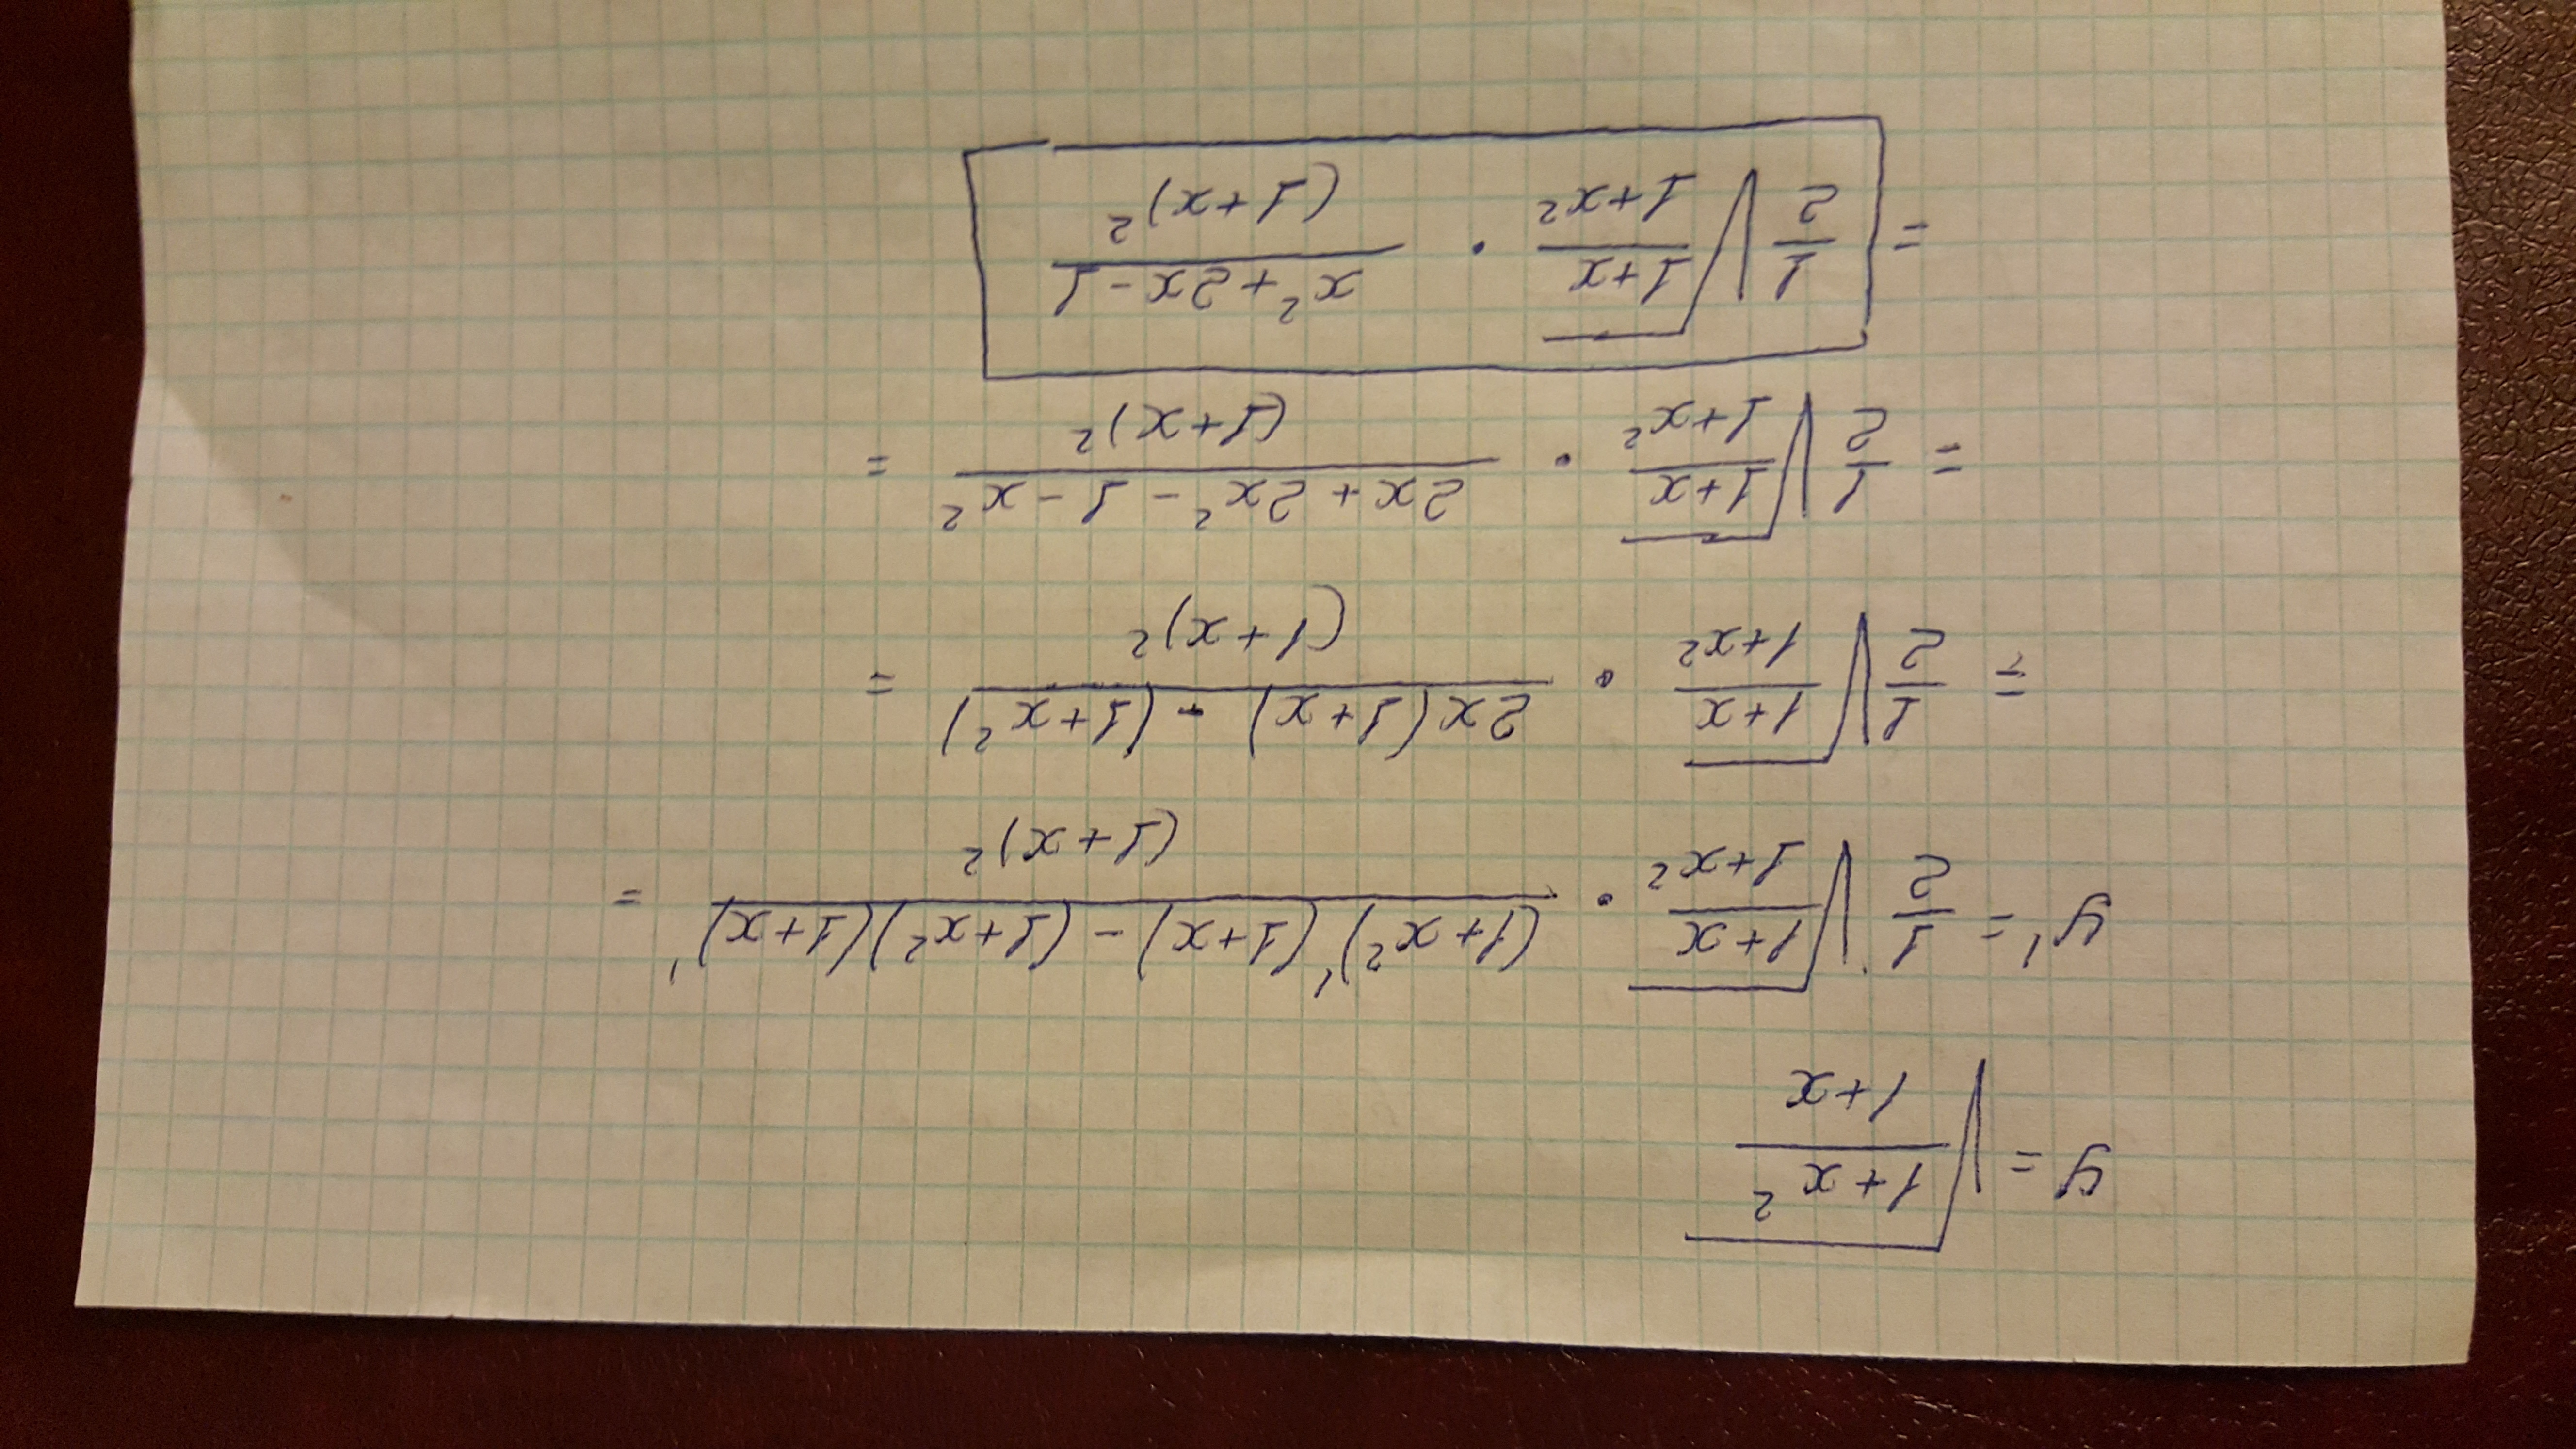 y = √((1+x²)/(1+x))
y' = 1/2 √((1+x)/(1+x²)) · ((1+x²)'(1+x) - (1+x²)(1+x)')/(1+x)² =
= 1/2 √((1+x)/(1+x²)) · (2x(1+x) - (1+x²))/(1+x)² =
= 1/2 √((1+x)/(1+x²)) · (2x + 2x² - 1 - x²)/(1+x)² =
= 1/2 √((1+x)/(1+x²)) · (x² + 2x - 1)/(1+x)²